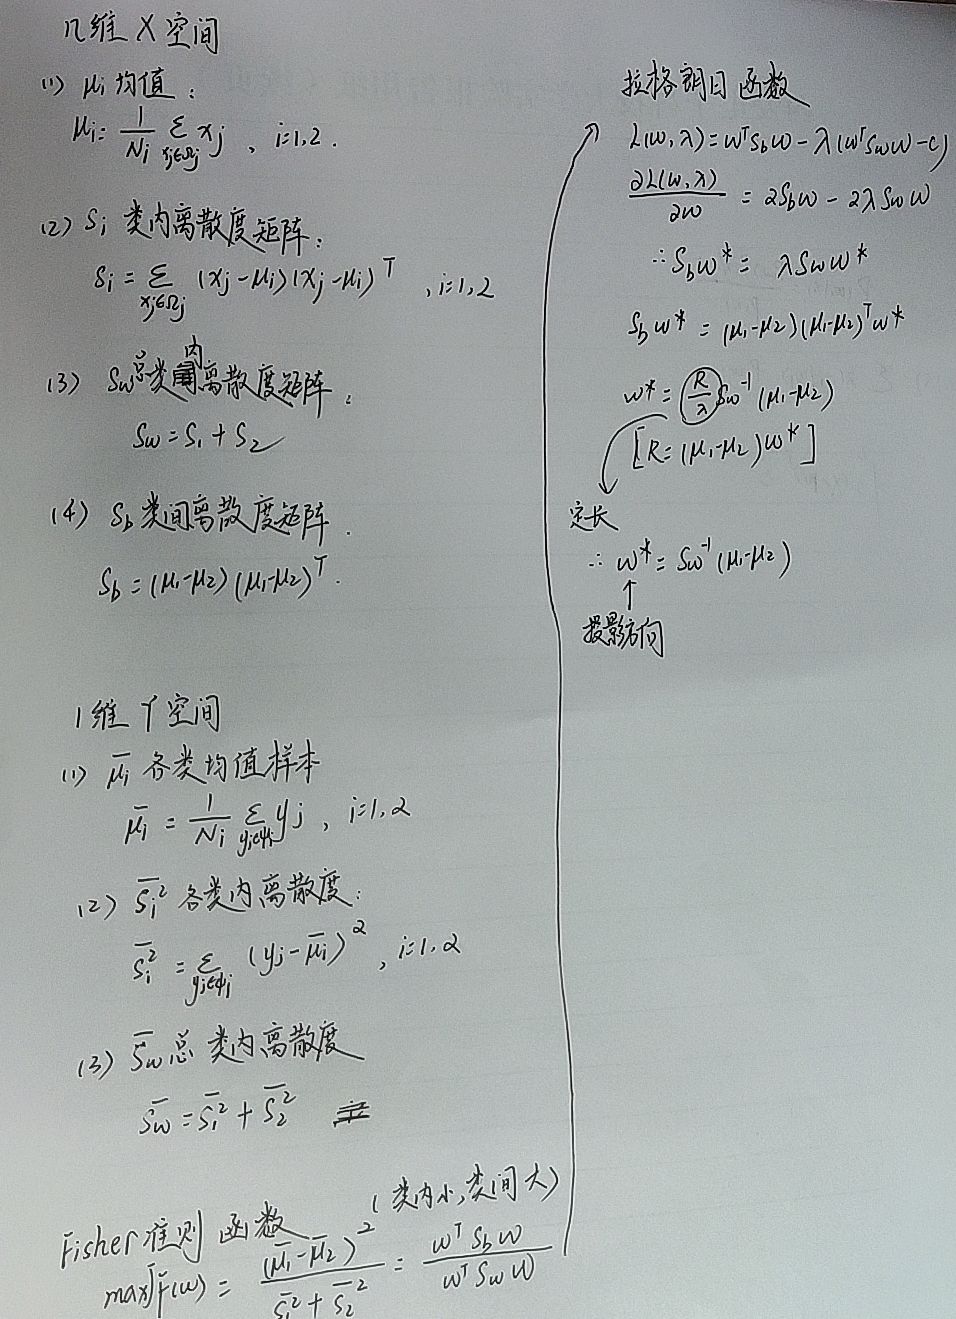 n维X空间
(1) μi均值:
μi = 1/Ni Σ xj∈Ωj xj , i=1,2.
(2) Si 类内离散度矩阵:
Si = Σ xj∈Ωj (xj-μi)(xj-μi)^T , i=1,2
(3) Sw总类内离散度矩阵:
Sw = S1 + S2
(4) Sb 类间离散度矩阵.
Sb = (μ1-μ2)(μ1-μ2)^T.
1维Y空间
(1) μ̄i 各类均值样本
μ̄i = 1/Ni Σ yj , i=1,2
(2) S̄i² 各类内离散度:
S̄i² = Σ (yj-μ̄i)² , i=1,2
(3) S̄w总类内离散度
S̄w = S̄1² + S̄2²
Fisher准则函数 (类内小,类间大)
max F(w) = (μ̄1-μ̄2)² / (S̄1²+S̄2²) = w^T Sb w / w^T Sw w
拉格朗日函数
L(w,λ) = w^T Sb w - λ(w^T Sw w - c)
∂L(w,λ)/∂w = 2Sbw - 2λSww
∴ Sbw* = λSww*
Sbw* = (μ1-μ2)(μ1-μ2)^T w*
w* = R/λ Sw^-1 (μ1-μ2)
[R = (μ1-μ2)w*]
定长
∴ w* = Sw^-1 (μ1-μ2)
↑
投影方向